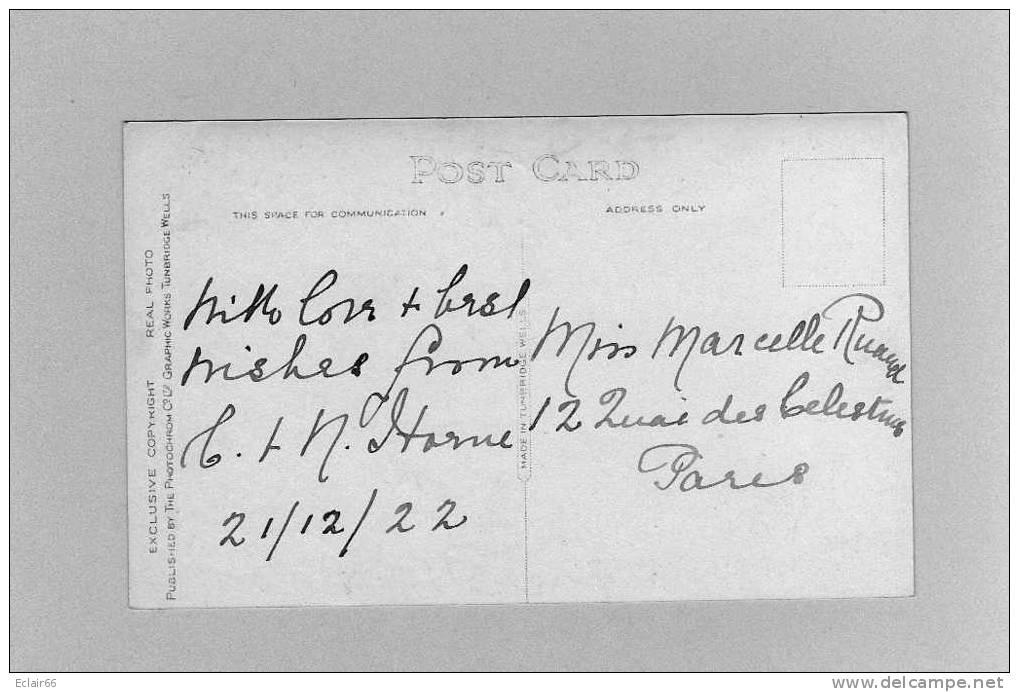 POST CARD
THIS SPACE FOR COMMUNICATION
ADDRESS ONLY
EXCLUSIVE COPYRIGHT REAL PHOTO
PUBLISHED BY THE PHOTOCHROM CO. LTD GRAPHIC WORKS TUNBRIDGE WELLS
With love + best
wishes from
C. + N. Horne
21/12/22
MADE IN TUNBRIDGE WELLS
Miss Marcelle
12 Quai des Celestins
Paris
Eclair66
www.delcampe.net